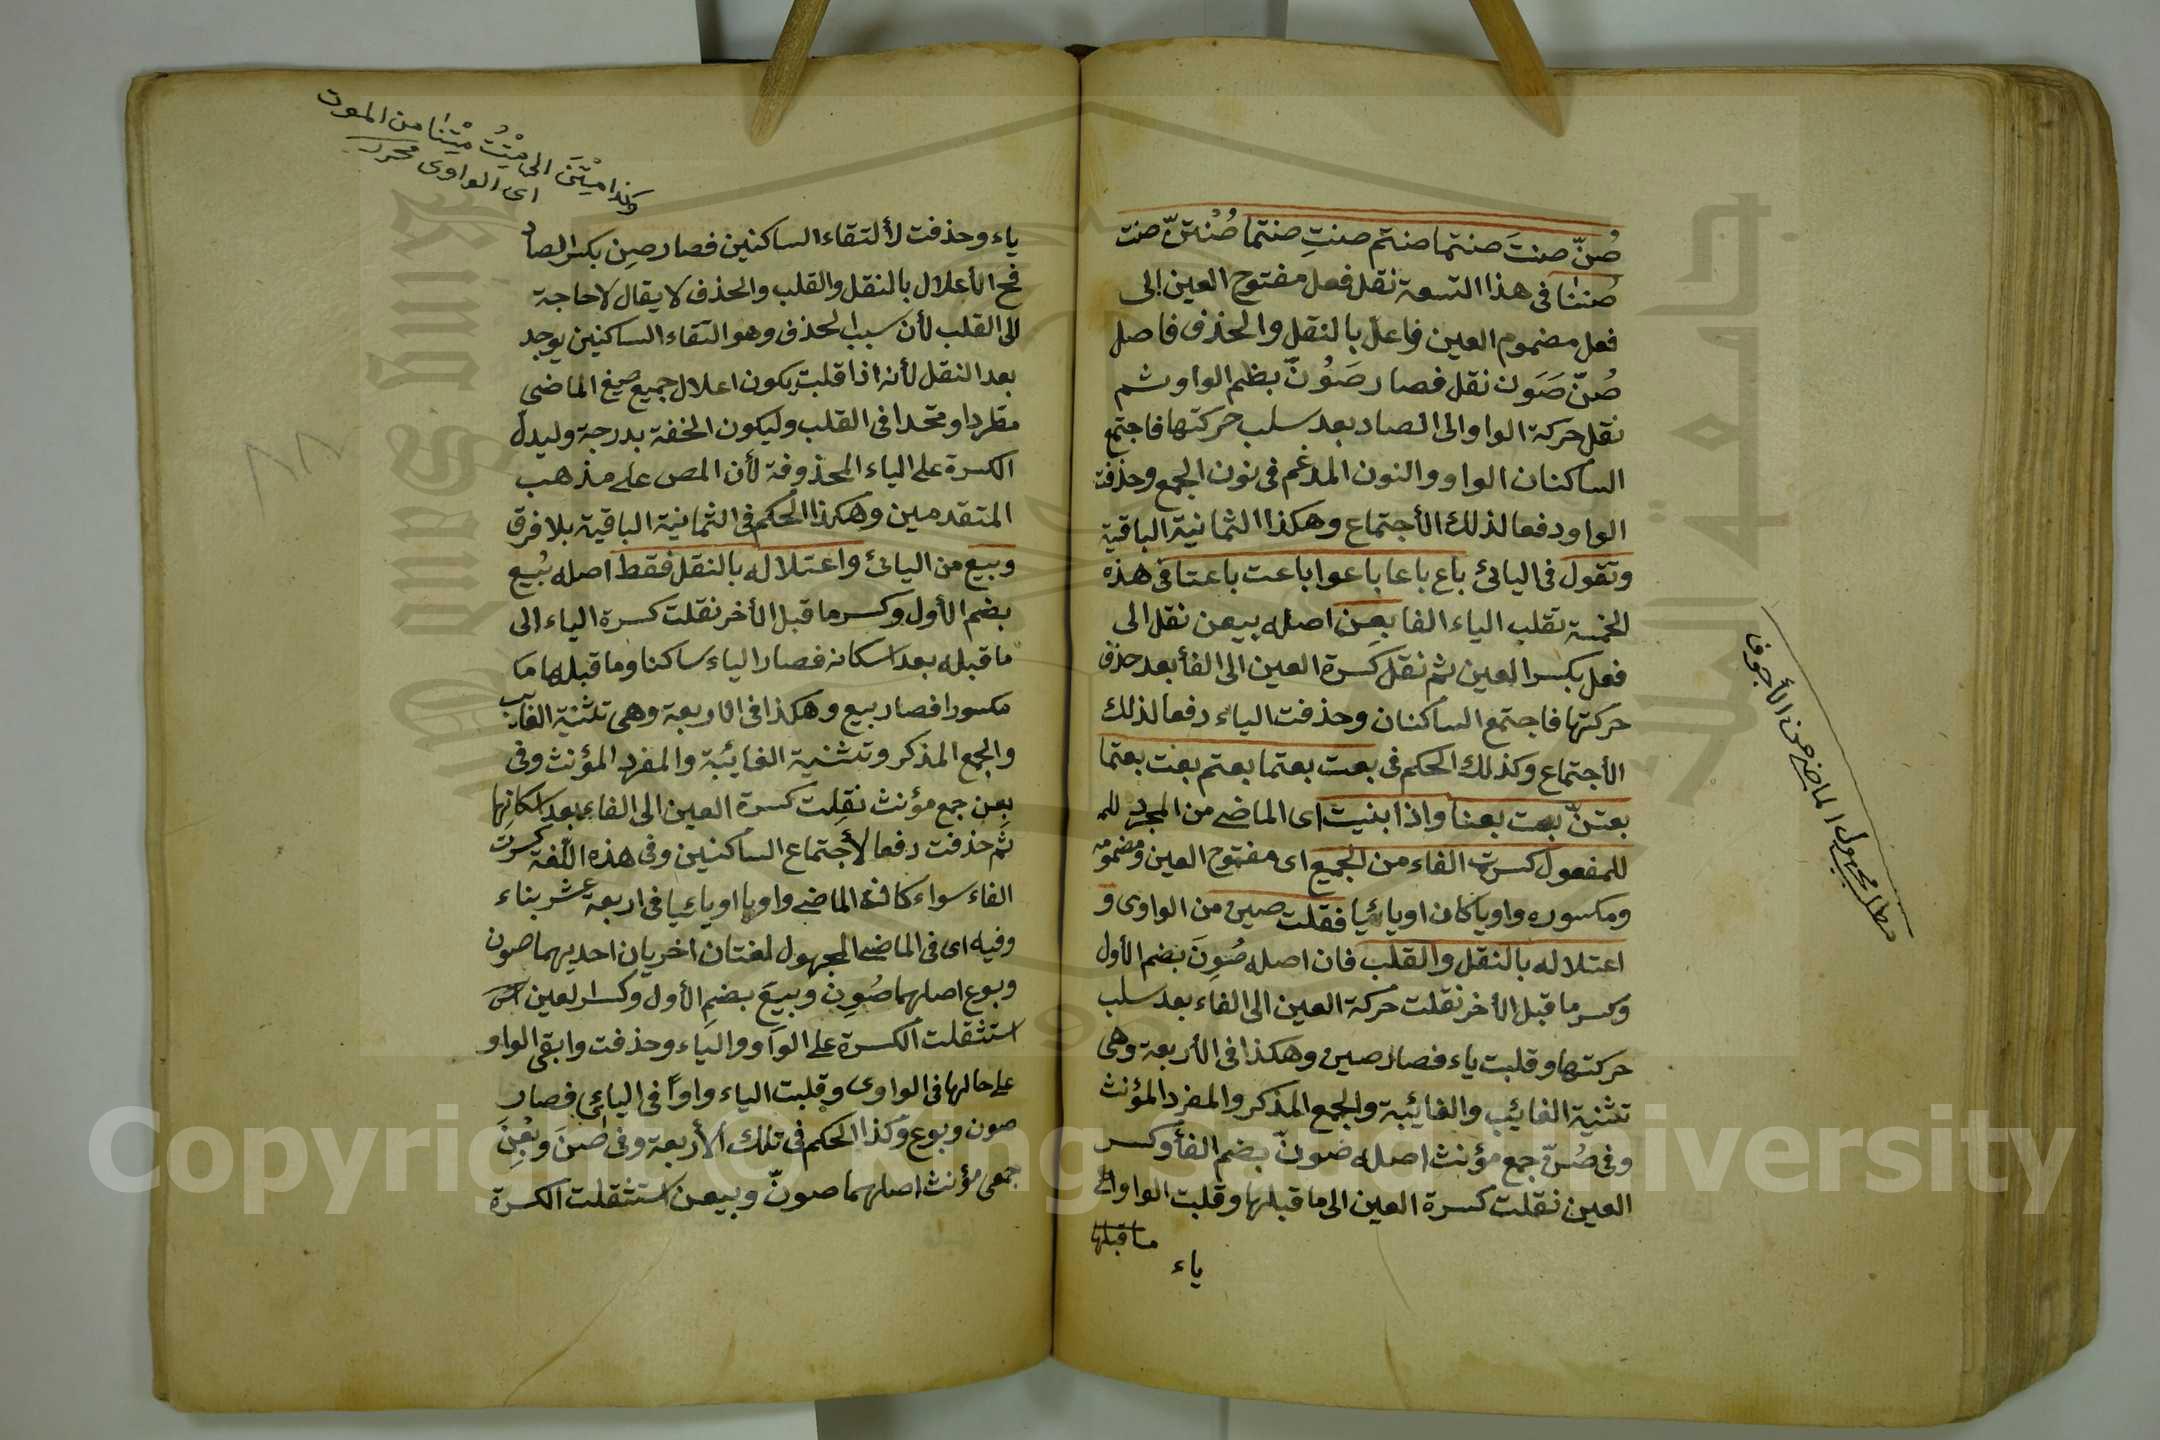 صُنّ صنتَ صنتما صنتم صنتِ صنتما صُنْتنّ صنت
صُننا فى هذا التسعة نقل فعل مفتوح العين الى
فعل مضموم العين فاعل بالنقل والحذف فاصل
صُنّ صَوَن نقل فصار صَوُنّ بظم الواو ثم
نقل حركة الواو الى الصاد بعد سلب حركتها فاجتمع
الساكنان الواو والنون المدغم فى نون الجمع وحذفت
الواو دفعا لذلك الأجتماع وهكذا الثمانية الباقية
وتقول فى اليائى باع باعا باعوا باعت باعتا فى هذه
الخمسة تقلب الياء الفا بعن اصله بيعن نقل الى
فعل بكسر العين ثم نقل كسرة العين الى الفأ بعد حذف
حركتها فاجتمع الساكنان وحذفت الياء دفعا لذلك
الأجتماع وكذلك الحكم فى بعت بعتما بعتم بعت بعتما
بعتنّ بعت بعنا واذا بنيت اى الماضى من المجرد للم
للمفعول كسرت الفاء من الجميع اى مفتوح العين ومضمومه
ومكسوره واويا كان اويائيا فقلت صين من الواوى و
اعتلاله بالنقل والقلب فان اصله صُوِنَ بضم الأول
وكسر ما قبل الأخر نقلت حركة العين الى الفاء بعد سلب
حركتها وقلبت ياء فصار صين وهكذا فى الأربعة وهى
تثنية الغائب والغائبة والجمع المذكر والمفرد المؤنث
وفى صُنّ جمع مؤنث اصله صونّ بضم الفأ وكسر
العين نقلت كسرة العين الى ما قبلها وقلبت الواو الى
ما قبلها
ياء
مطلب مجهول الماضى من الأجوف
وكذا مِتْنَ الى مِتْتُ مِتْنا من الموت
اى الواوى محرر
ياء وحذفت لألتقاء الساكنين فصار صِن بكسر الصاد
فح الأعلال بالنقل والقلب والحذف لا يقال لا حاجة
الى القلب لأن سبب الحذف وهو التقاء الساكنين يوجد
بعد النقل لأنه اذا قلبت يكون اعلال جميع صيغ الماضى
مطردا ومتحدا فى القلب وليكون الخفة بدرجة وليدل
الكسرة على الياء المحذوفة لأن المص على مذهب
المتقدمين وهكذا الحكم فى الثمانية الباقية بلا فرق
وبيع من اليائى واعتلاله بالنقل فقط اصله بُيِع
بضم الأول وكسر ما قبل الأخر نقلت كسرة الياء الى
ما قبله بعد اسكانه فصار الياء ساكنا وما قبلها ما
مكسورا فصار بيع وهكذا فى الاربعة وهى تثنية الغائب
والجمع المذكر وتثنية الغائبة والمفرد المؤنث وفى
بعن جمع مؤنث نقلت كسرة العين الى الفاء بعد اسكانها
ثم حذفت دفعا لأجتماع الساكنين وفى هذه اللّغة كسرت
الفاء سواء كان الماضى واويا اويائيا فى اربعة عشر بناء
وفيه اى فى الماضى المجهول لغتان اخريان احديهما صون
وبوع اصلهما صُوِن وبيعَ بضم الأول وكسر لعين
استثقلت الكسرة على الواو والياء وحذفت وابقى الواو
على حالها فى الواوى وقلبت الياء واواً فى اليائى فصار
صون وبوع وكذا الحكم فى تلك الأربعة وفى صُنَ وبُعْنَ
جمعى مؤنث اصلهما صونّ وبيعن استثقلت الكسرة
Copyright © King Saud University